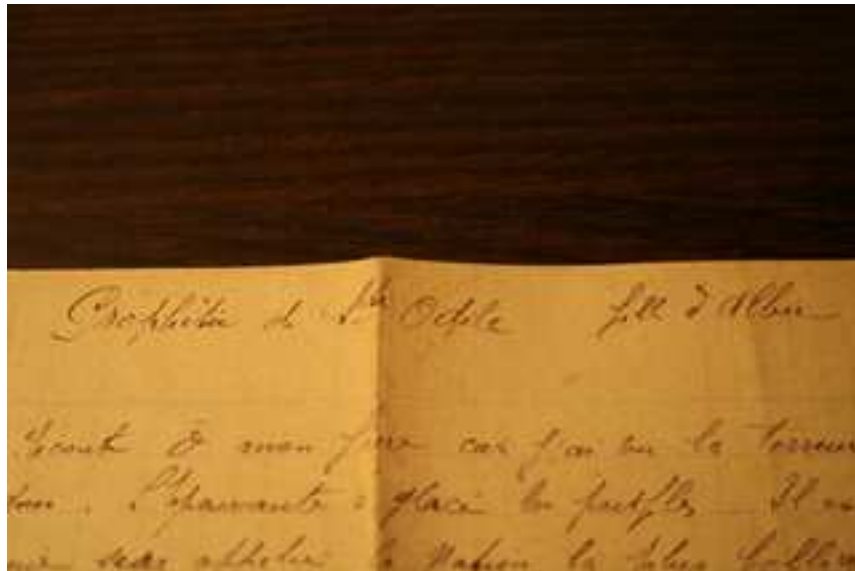 Prophétie de Ste Odile fille d'Albu
Écoute ô mon frère car j'ai vu la terreur
L'épouvante a glacé les peuples Il
sera appelée la Nation la plus